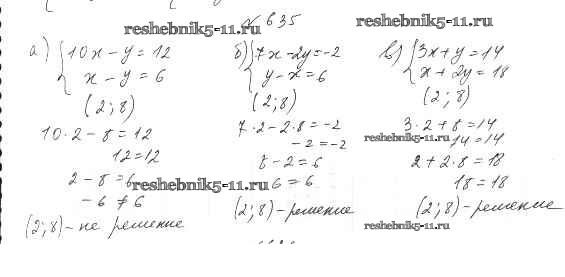 reshebnik5-11.ru
№ 635
reshebnik5-11.ru
а) { 10x - y = 12
x - y = 6
(2; 8)
10 · 2 - 8 = 12
12 = 12
2 - 8 = 6
-6 ≠ 6
(2; 8) - не решение
б) { 7x - 2y = -2
y - x = 6
(2; 8)
7 · 2 - 2 · 8 = -2
-2 = -2
8 - 2 = 6
reshebnik5-11.ru
6 = 6
(2; 8) - решение
в) { 3x + y = 14
x + 2y = 18
(2; 8)
3 · 2 + 8 = 14
reshebnik5-11.ru
14 = 14
2 + 2 · 8 = 18
18 = 18
(2; 8) - решение
reshebnik5-11.ru